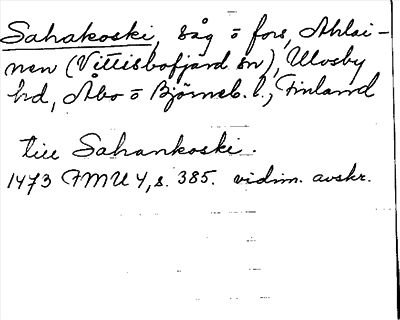 Sahakoski, såg o fors, Ahlai-
nen (Vittisbofjärd sn), Ulvsby
hd, Åbo o Björneb. l., Finland
till Sahankoski.
1473 FMU 4, s. 385. vidim. avskr.